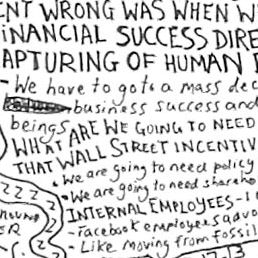 ENT WRONG WAS WHEN W
FINANCIAL SUCCESS DIRE
APTURING OF HUMAN
- We have to got a mass dec
business success and
beings
WHAT ARE WE GOING TO NEED
THAT WALL STREET INCENTIV
• We are going to need policy
• We are going to need shareho
INTERNAL EMPLOYEES-
- Facebook employees advo
- Like moving from fossil
Z Z Z Z
17-13